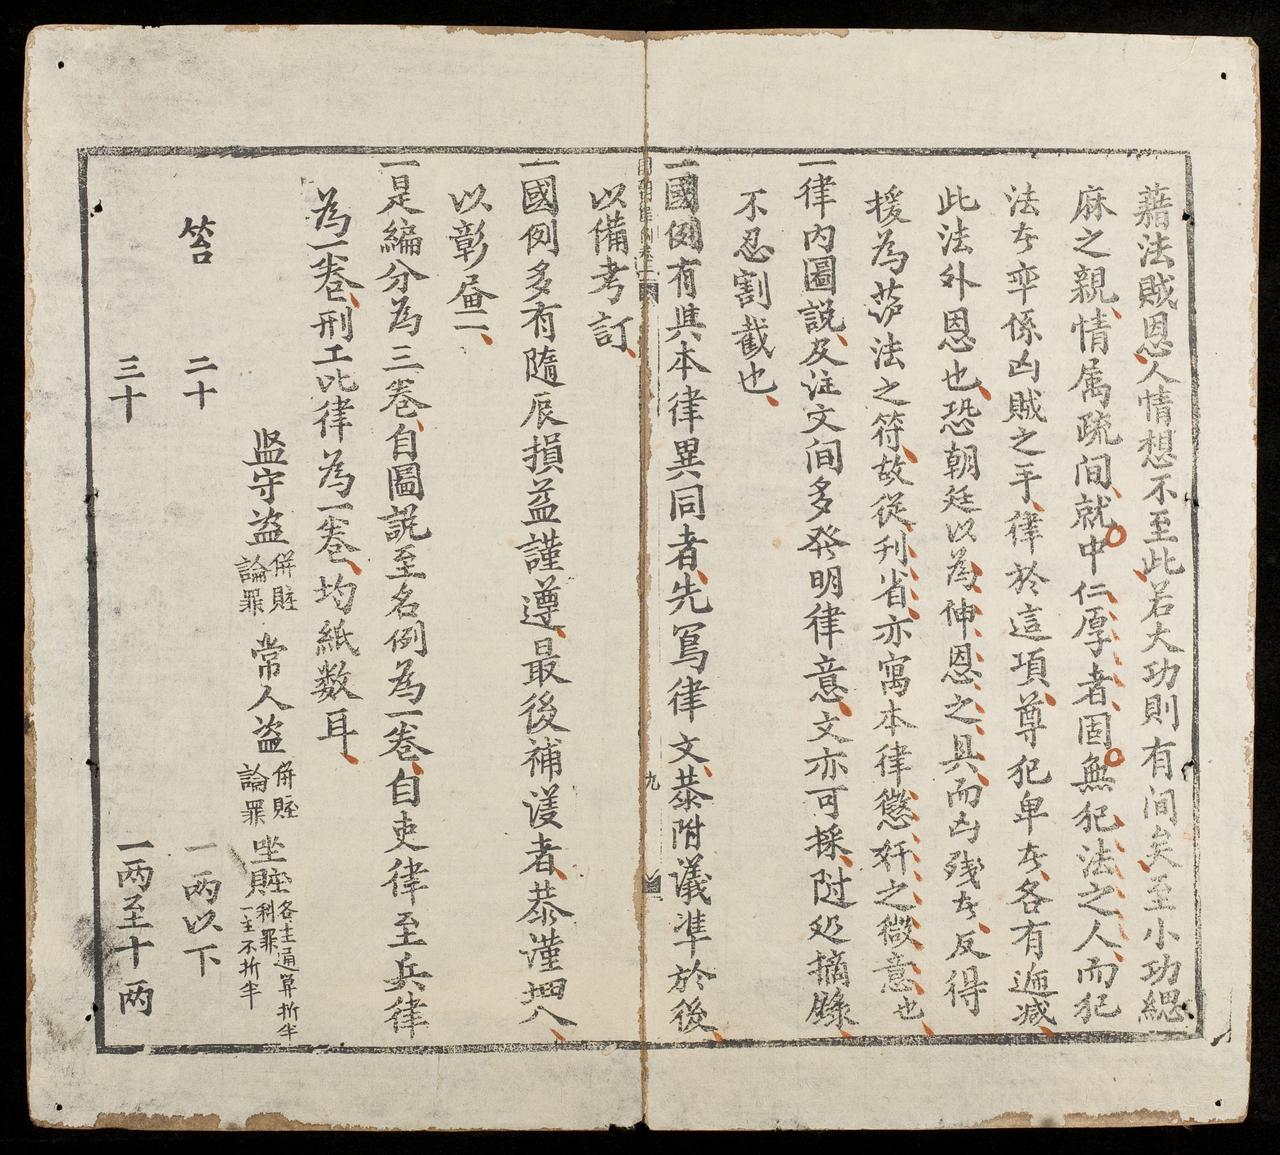 藉法賊恩人情想不至此若大功則有间矣至小功緦
麻之親情属疏间就中仁厚者固無犯法之人而犯
法者率係凶賊之手律於這項尊犯卑者各有逓减
此法外恩也恐朝廷以為伸恩之具而凶残者反得
援為法之符故從刋省亦寓本律懲奸之微意也
一律内圖説及注文间多発明律意文亦可採附処摘錄
不忍割截也
一國例有與本律異同者先寫律文恭附議準於後
以備考訂
一國例多有隨辰損益謹遵最後補議者恭謹
以彰
一是編分為三卷自圖説至名例為一卷自吏律至兵律
為一卷刑工比律為一卷均紙数耳
监守盗 併賍論罪 常人盗 併賍論罪 坐賍 各主通算折半科罪一主不折半
笞 二十 一两以下
三十 一两至十两
九